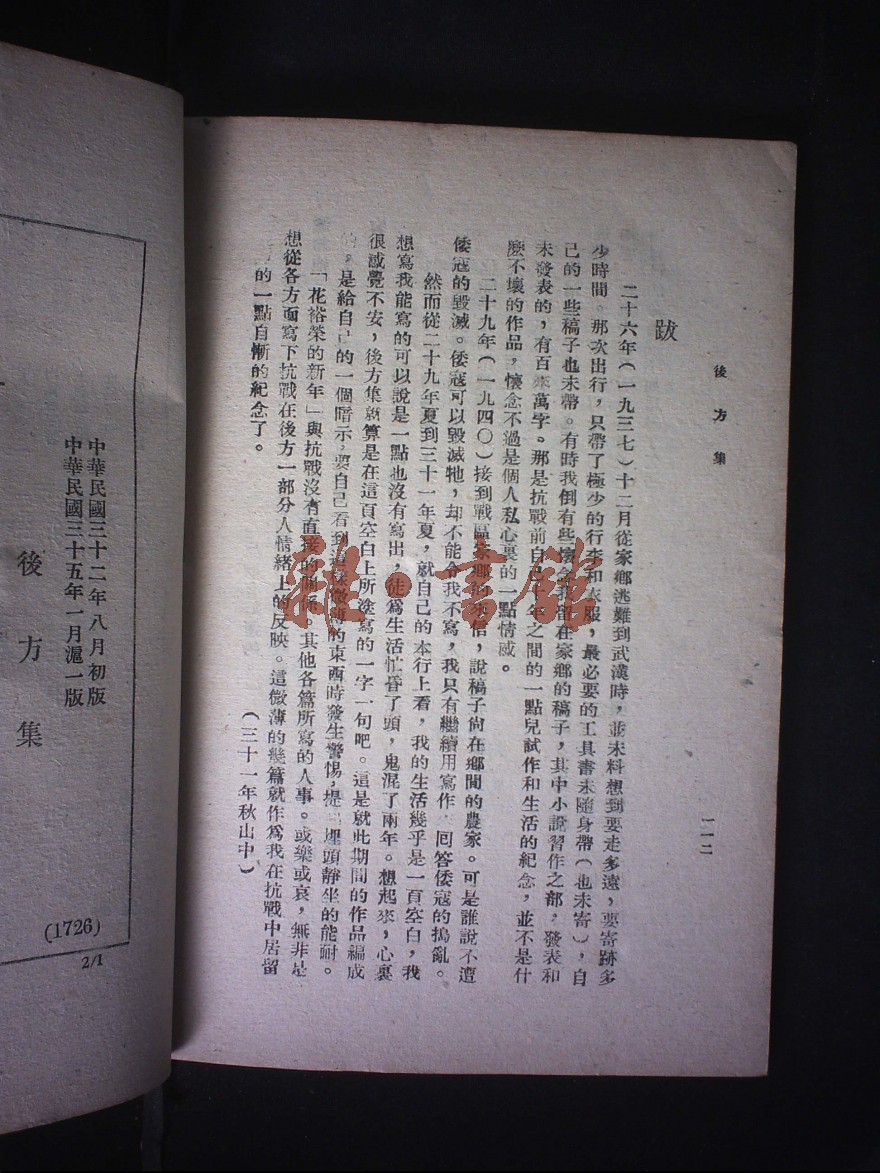 後方集
二一二
跋
二十六年(一九三七)十二月從家鄉逃難到武漢時,並未料想到要走多遠,要寄跡多
少時間。那次出行,只帶了極少的行李和衣服,最必要的工具書未隨身帶(也未寄),自
己的一些稿子也未帶。有時我倒有些懷念我留在家鄉的稿子,其中小說習作之部,發表和
未發表的,有百來萬字。那是抗戰前自己十年之間的一點兒試作和生活的紀念,並不是什
麽不壞的作品,懷念不過是個人私心裏的一點情感。
二十九年(一九四〇)接到戰區家鄉的來信,說稿子尙在鄉間的農家。可是誰說不遭
倭寇的毀滅。倭寇可以毀滅牠,却不能令我不寫,我只有繼續用寫作 回答倭寇的搗亂。
然而從二十九年夏到三十一年夏,就自己的本行上看,我的生活幾乎是一頁空白,我
想寫我能寫的可以說是一點也沒有寫出,徒爲生活忙昏了頭,鬼混了兩年。想起來,心裏
很感覺不安,後方集就算是在這頁空白上所塗寫的一字一句吧。這是就此期間的作品編成
的,是給自己的一個暗示,要自己看到這樣微薄的東西時發生警惕,提 埋頭靜坐的能耐。
「花裕榮的新年」與抗戰沒有直接的關係,其他各篇所寫的人事。或樂或哀,無非是
想從各方面寫下抗戰在後方一部分人情緒上的反映。這微薄的幾篇就作爲我在抗戰中居留
的一點自慚的紀念了。
(三十一年秋山中)
雜·書館
中華民國三十二年八月初版
中華民國三十五年一月滬一版
後方集
(1726)
2/1